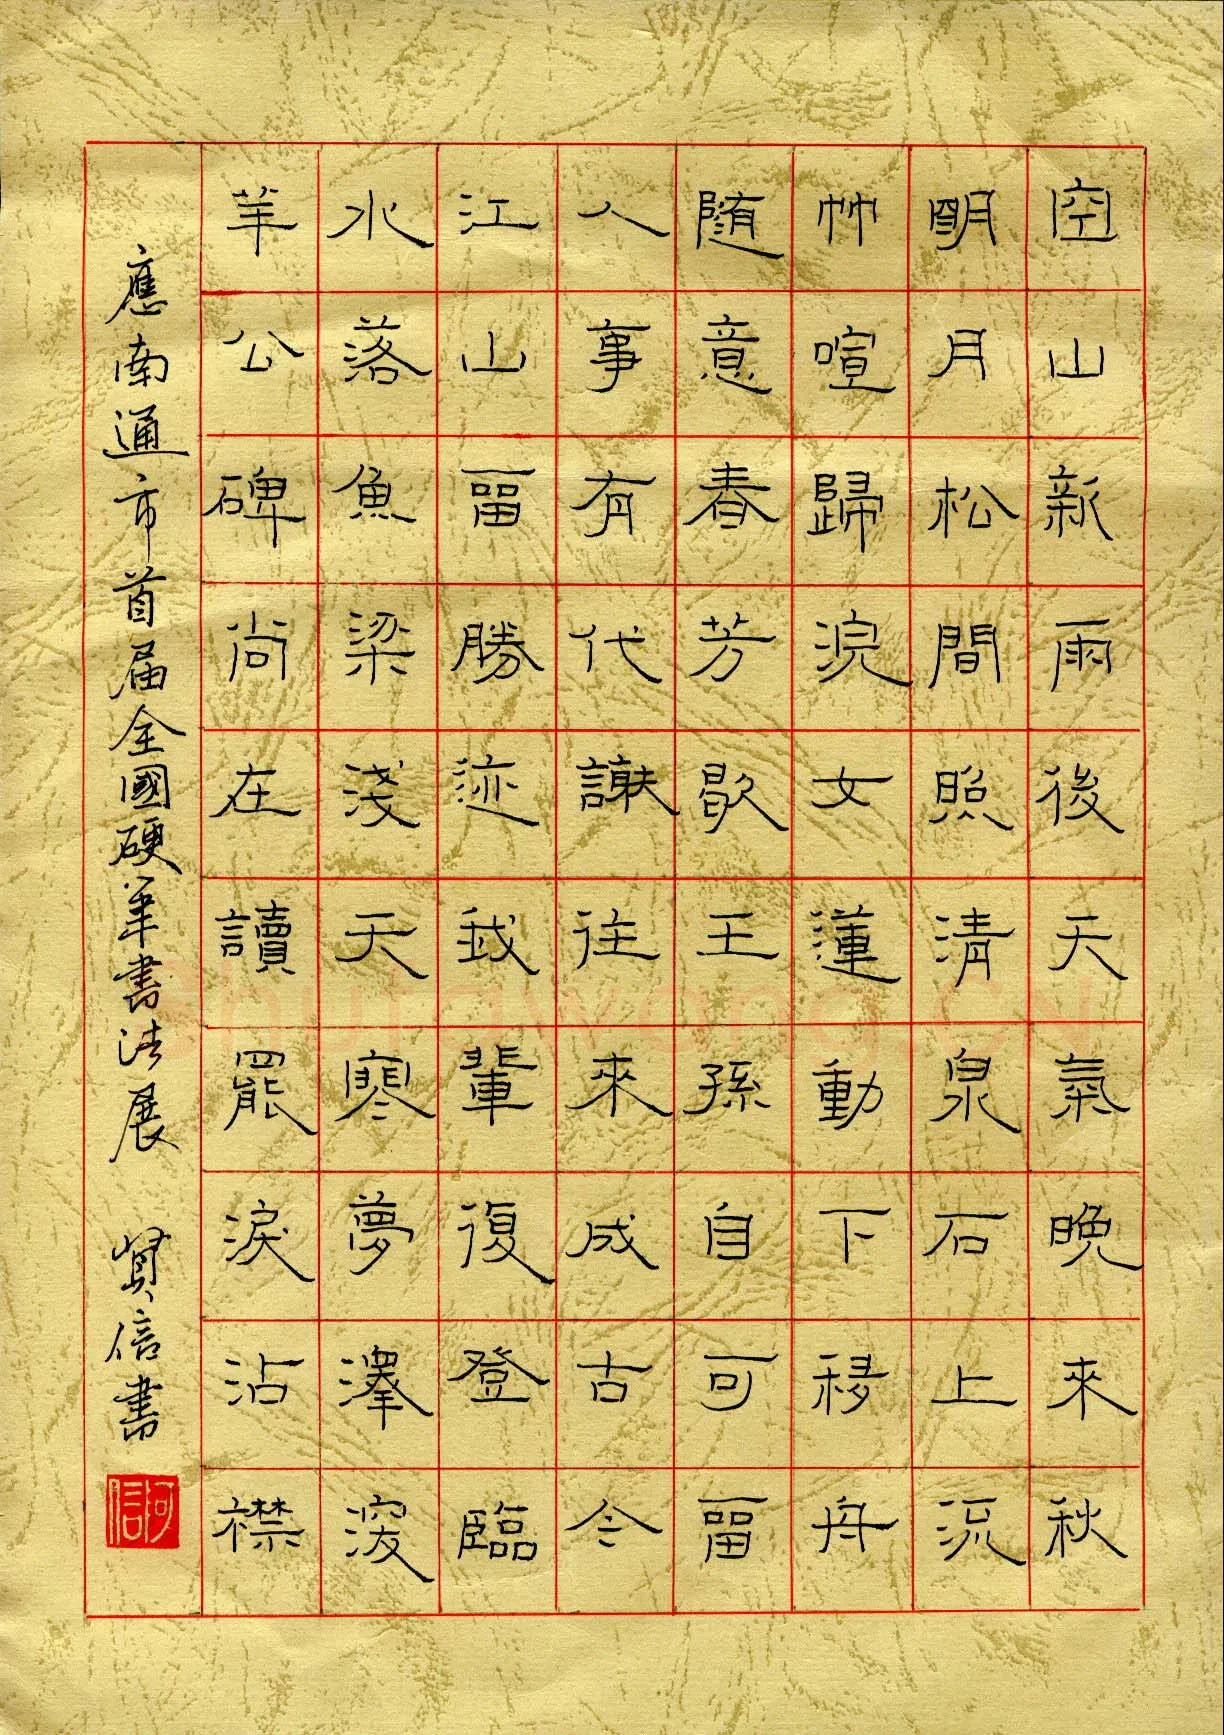 空山新雨後天氣晚來秋
明月松間照清泉石上流
竹喧歸浣女蓮動下移舟
随意春芳歇王孫自可留
人事有代謝往來成古今
江山留勝迹我輩復登臨
水落魚梁淺天寒夢澤深
羊公碑尚在讀罷淚沾襟
應南通市首届全國硬筆書法展 賢信書
Shufawang.CN